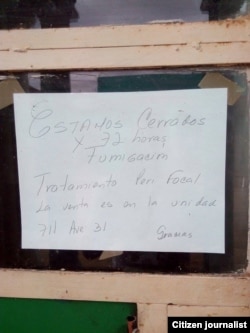 Estamos Cerrados
x 72 horas
Fumigación
Tratamiento Peri Focal
La venta es en la unidad
711 Ave 31
Gracias
Citizen journalist